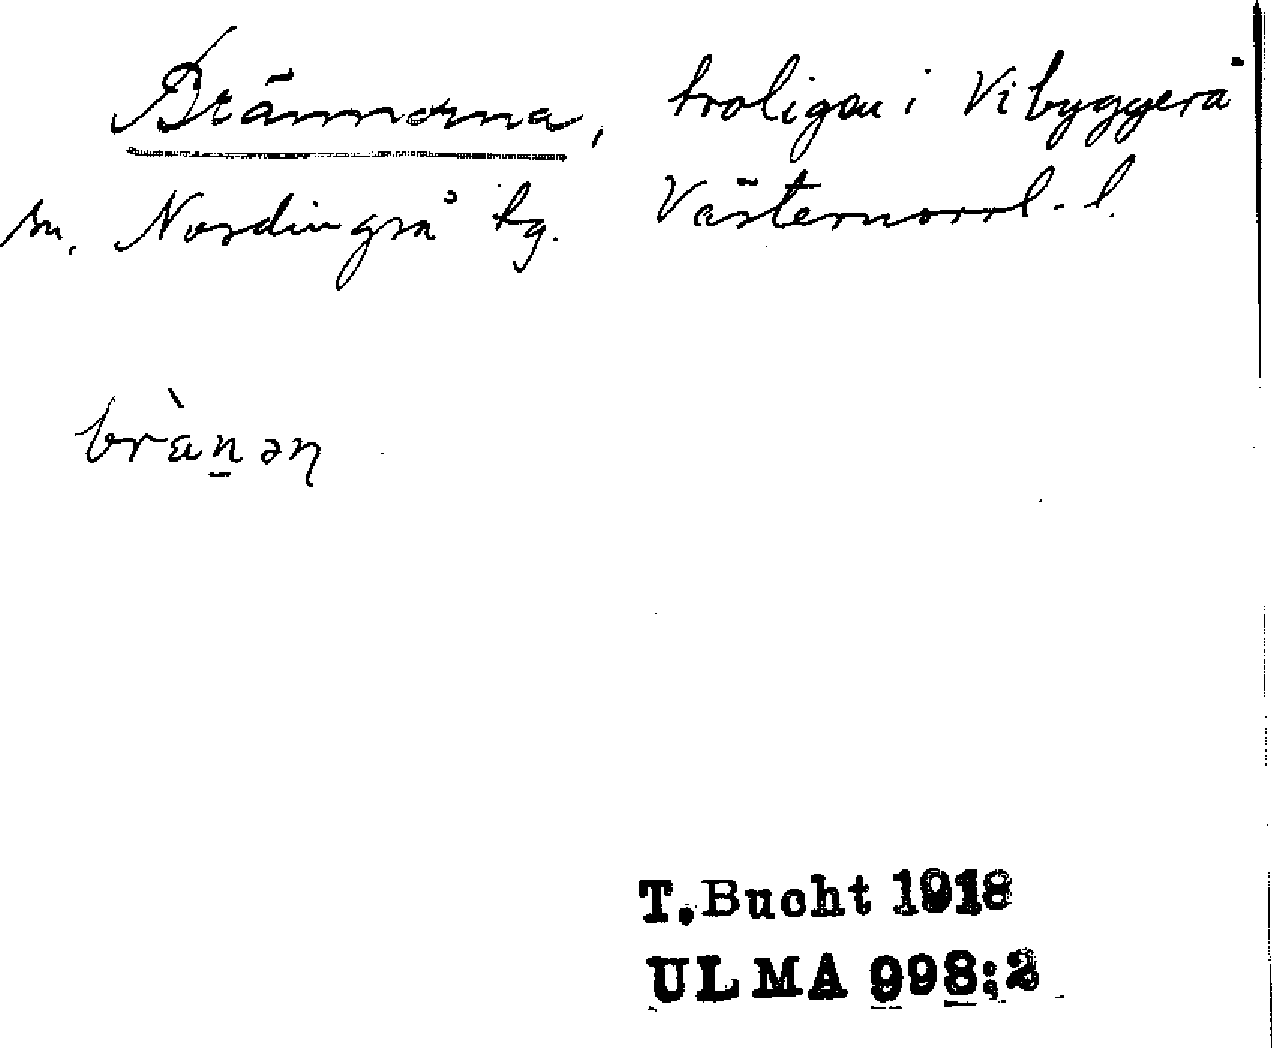 Brännorna, troligen i Vibyggerå
sn. Nordingrå tg. Västernorrl. l.
brànən
T. Bucht 1918
ULMA 998:2